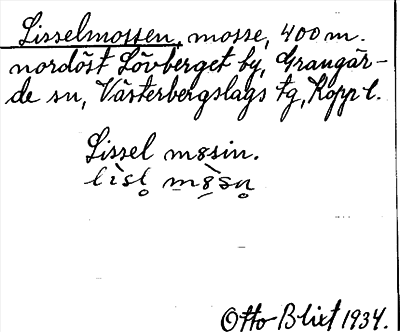 Lisselmossen, mosse, 400 m.
nordöst Lövberget by, Grangär-
de sn, Västerbergslags tg, Kopp l.
Lissel mɞsin.
lìsl̥ mɞ̀sn̥
Otto Blixt 1934.